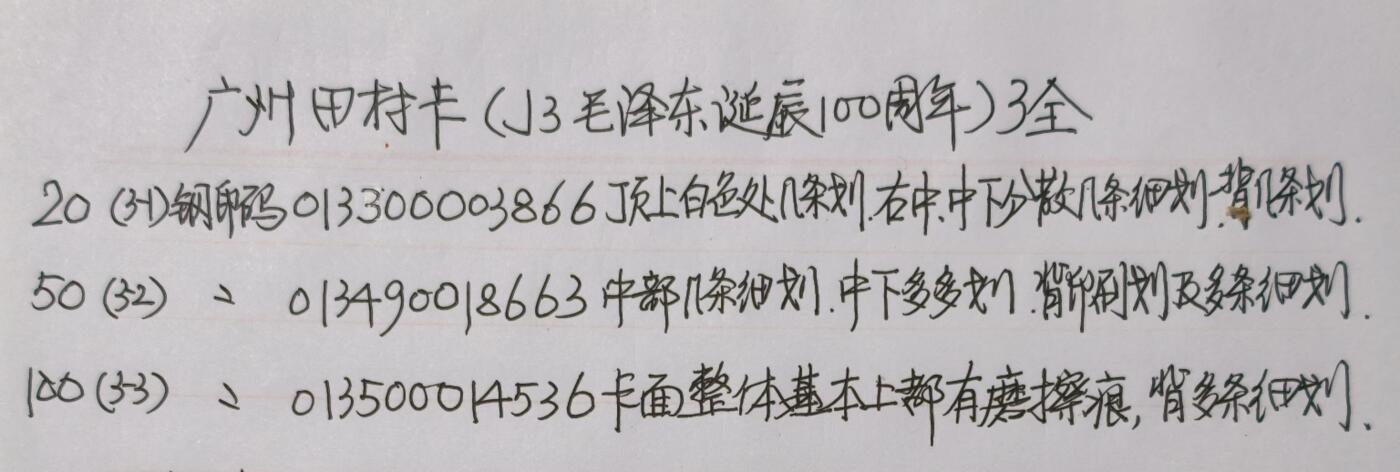 广州田村卡(J3毛泽东诞辰100周年)3全
20 (3-1)钢印码 013300003866 顶上白色处几条划.右中.中下分散几条细划.背几条划.
50 (3-2) 〃 013490018663 中部几条细划.中下多多划.背印刷划及多条细划.
100 (3-3) 〃 013500014536 卡面整体基本上都有磨擦痕,背多条细划.